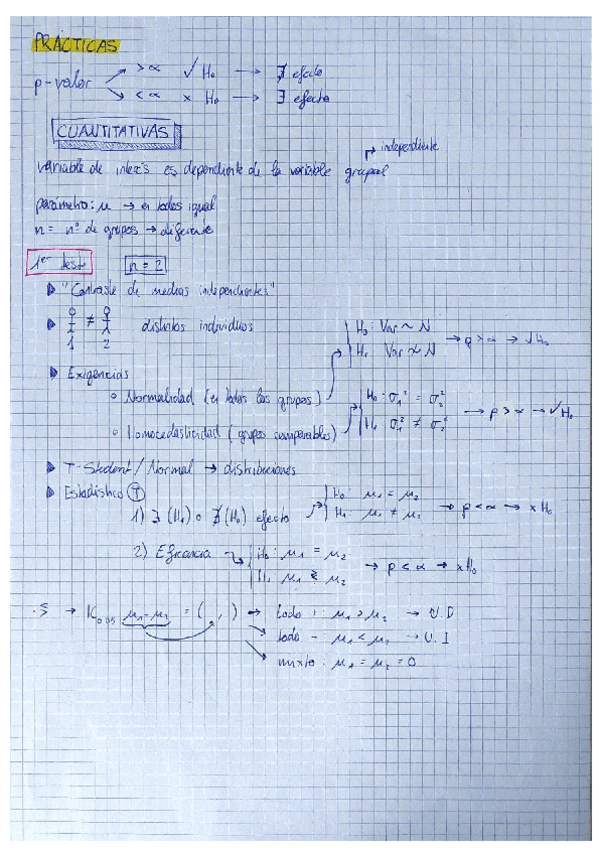 PRÁCTICAS
p-valor
> α ✓ H₀ → ∄ efecto
< α x H₀ → ∃ efecto
CUANTITATIVAS
→ independiente
variable de interés es dependiente de la variable grupal
parámetro: μ → en todos igual
n = nº de grupos → diferente
1er test n = 2
"Contraste de medias independientes"
≠ distintos individuos
1 2
H₀: Var ~ N
H₁ Var ≁ N → p > α → ✓H₀
Exigencias
Normalidad (en todos los grupos)
H₀: σ₁² = σ₂²
H₁ σ₁² ≠ σ₂² → p > α → ✓H₀
Homocedasticidad (grupos comparables)
T-Student / Normal → distribuciones
Estadístico T
1) ∃ (H₁) o ∄ (H₀) efecto
H₀: μ₁ = μ₂
H₁: μ₁ ≠ μ₂ → p < α → x H₀
2) Eficacia
H₀: μ₁ = μ₂
H₁ μ₁ ≷ μ₂ → p < α → x H₀
→ IC₀.₉₅ μ₁ - μ₂ = ( , ) → todo + : μ₁ > μ₂ → U.D
todo - μ₁ < μ₂ → U.I
mixto: μ₁ = μ₂ = 0